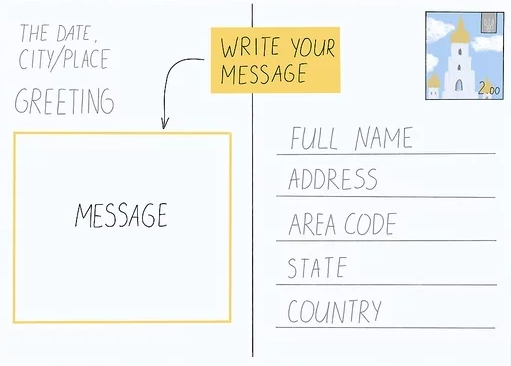 THE DATE,
CITY/PLACE
GREETING
WRITE YOUR
MESSAGE
MESSAGE
2.00
FULL NAME
ADDRESS
AREA CODE
STATE
COUNTRY